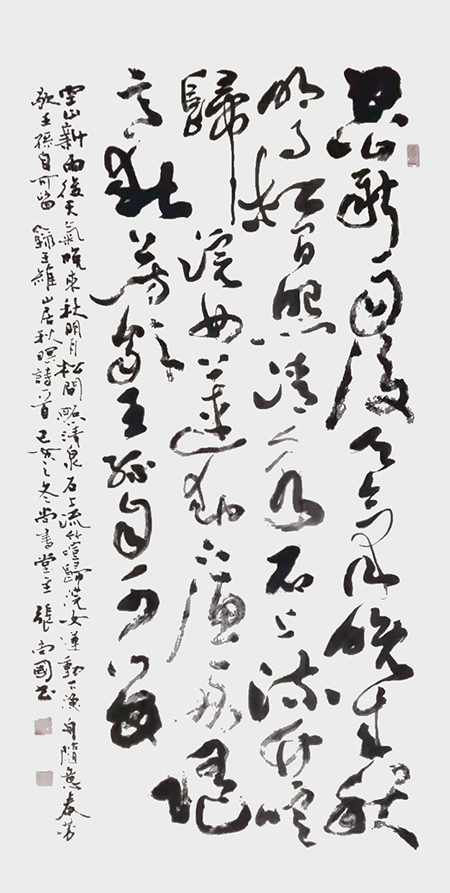 空山新雨後天氣晚來秋
明月松間照清泉石上流竹喧
歸浣女蓮動下漁舟隨
意春芳歇王孫自可留
空山新雨後天氣晚來秋明月松間照清泉石上流竹喧歸浣女蓮動下漁舟隨意春芳
歇王孫自可留 錄王維山居秋暝詩一首 己亥之冬尚書堂主張尚國书